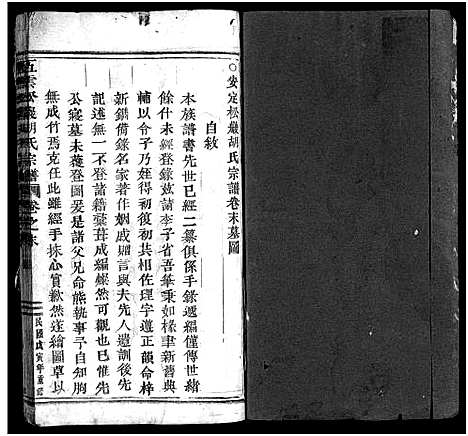 ○安定松巖胡氏宗譜卷末墓圖
自敘
本族譜書先世已經二纂俱係手錄遞編僅傳世緒
餘什未經登錄茲請李子省吾華秉如椽聿新舊典
輔以令子乃姪得初復初其相佐理字遵正韻命梓
新鐫備錄名家著作姻戚贈言與夫先人遺訓後先
記述無一不登諸籍彙葺成編燦然可觀也已惟先
公寢墓未獲登圖爰是諸父兄命熊執事予自知胸
無成竹焉克任此雖經手抹心實歉然遂繪圖草以
五雲松巖胡氏宗譜
卷之末
民國戊寅年重鐫